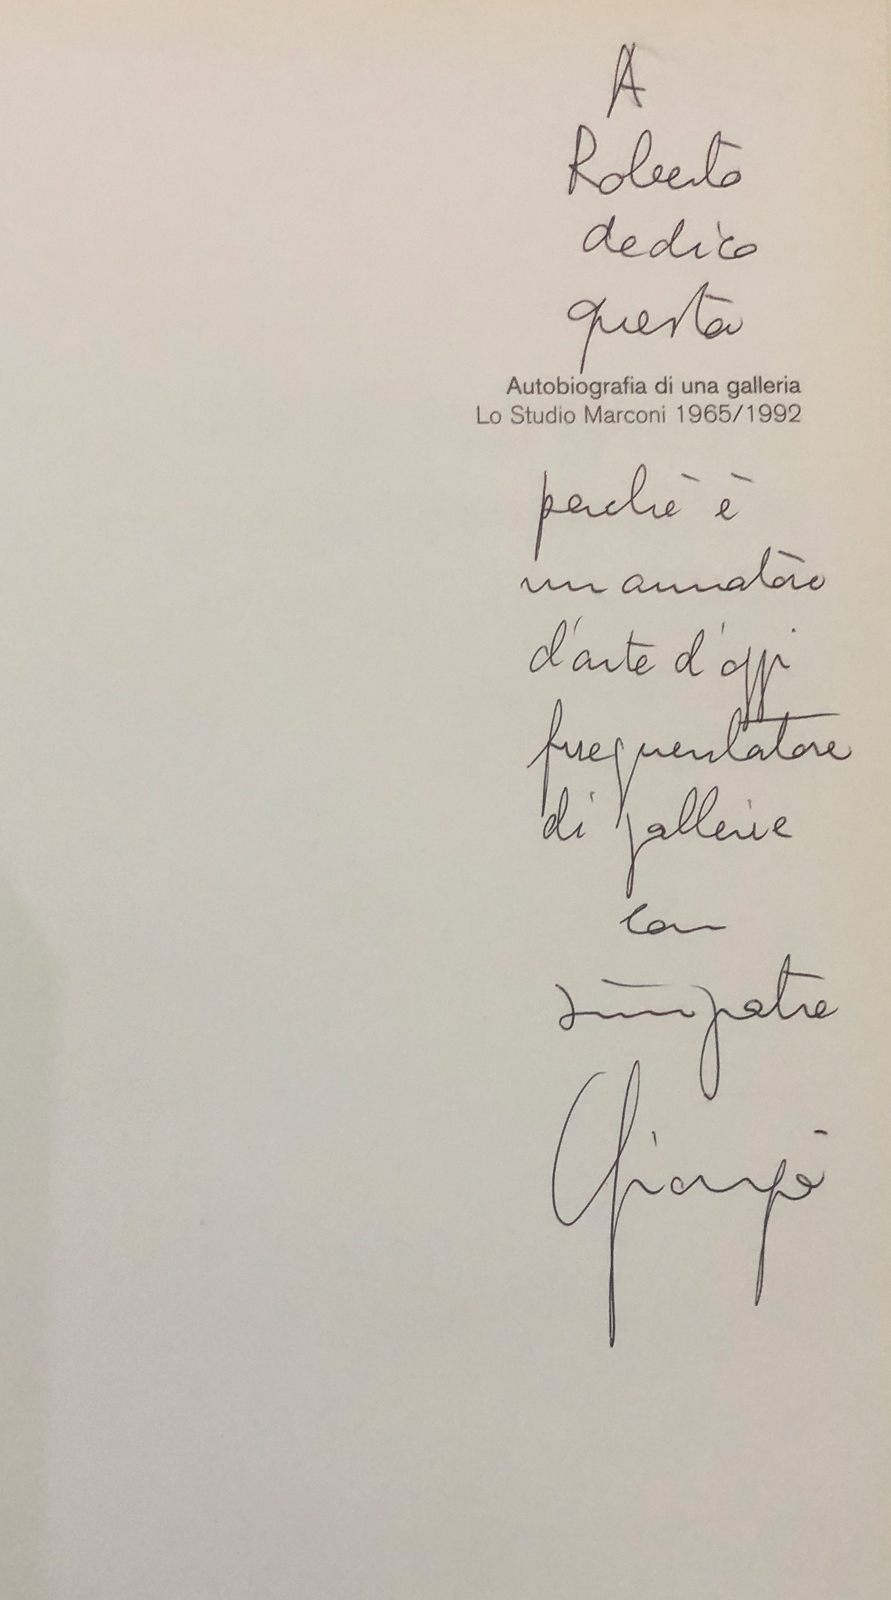 A
Roberto
dedico
questa
Autobiografia di una galleria
Lo Studio Marconi 1965/1992
perchè è
un amatore
d'arte d'oggi
frequentatore
di gallerie
con
simpatia